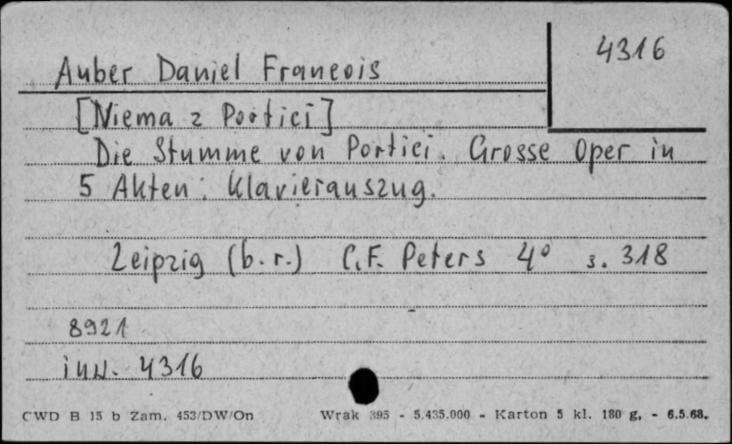 4316
Auber Daniel Francois
[Niema z Portici]
Die Stumme von Portici. Grosse Oper in
5 Akten. Klavierauszug.
Leipzig (b.r.) C.F. Peters 4° s. 318
8921
inw. 4316
CWD B 15 b Zam. 453/DW/On Wrak 395 - 5.435.000 - Karton 5 kl. 180 g. - 6.5.68.